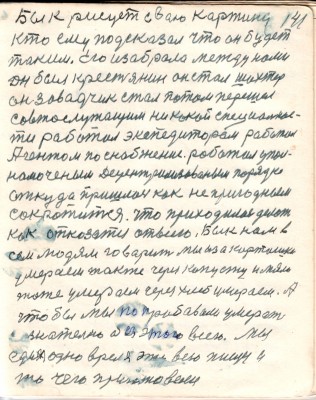 Бык рисует свою картину 141
кто ему подсказал что он будет
таким. Его избрала между нами
он был крестянин он стал шихтер
он завадчик стал потом перешол
совпослутащим никокой специалнос-
ти работал экспедитором работал
Агентом по снабжение. работал упол-
намоченым Децентрилизованым порядке
откуда пришлои как не пригодным
сокротится. что приходилося
как отказатся отвсего. Бык нам в
сем людям говорит мы за картошку
умераем также через капусту
тоже умераем через хлеб умераем. А
что бы мы попробавали умерат
знателно без этого всего. Мы
одно время эти всю пищу и
то чего приготовели